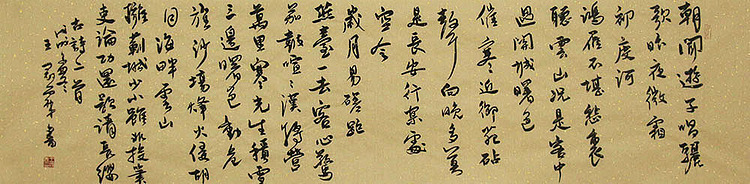 朝聞遊子唱驪
歌昨夜微霜
初度河
鴻雁不堪愁裏
聽雲山況是客中
過關城曙色
催寒近御苑砧
聲向晚多莫
是長安行樂處
空令
歲月易蹉跎
燕臺一去客心驚
笳鼓喧喧漢將營
萬里寒光生積雪
三邊曙色動危
旌沙場烽火侵胡
月海畔雲山
擁薊城少小雖非投筆
吏論功還欲請長纓
古詩二首